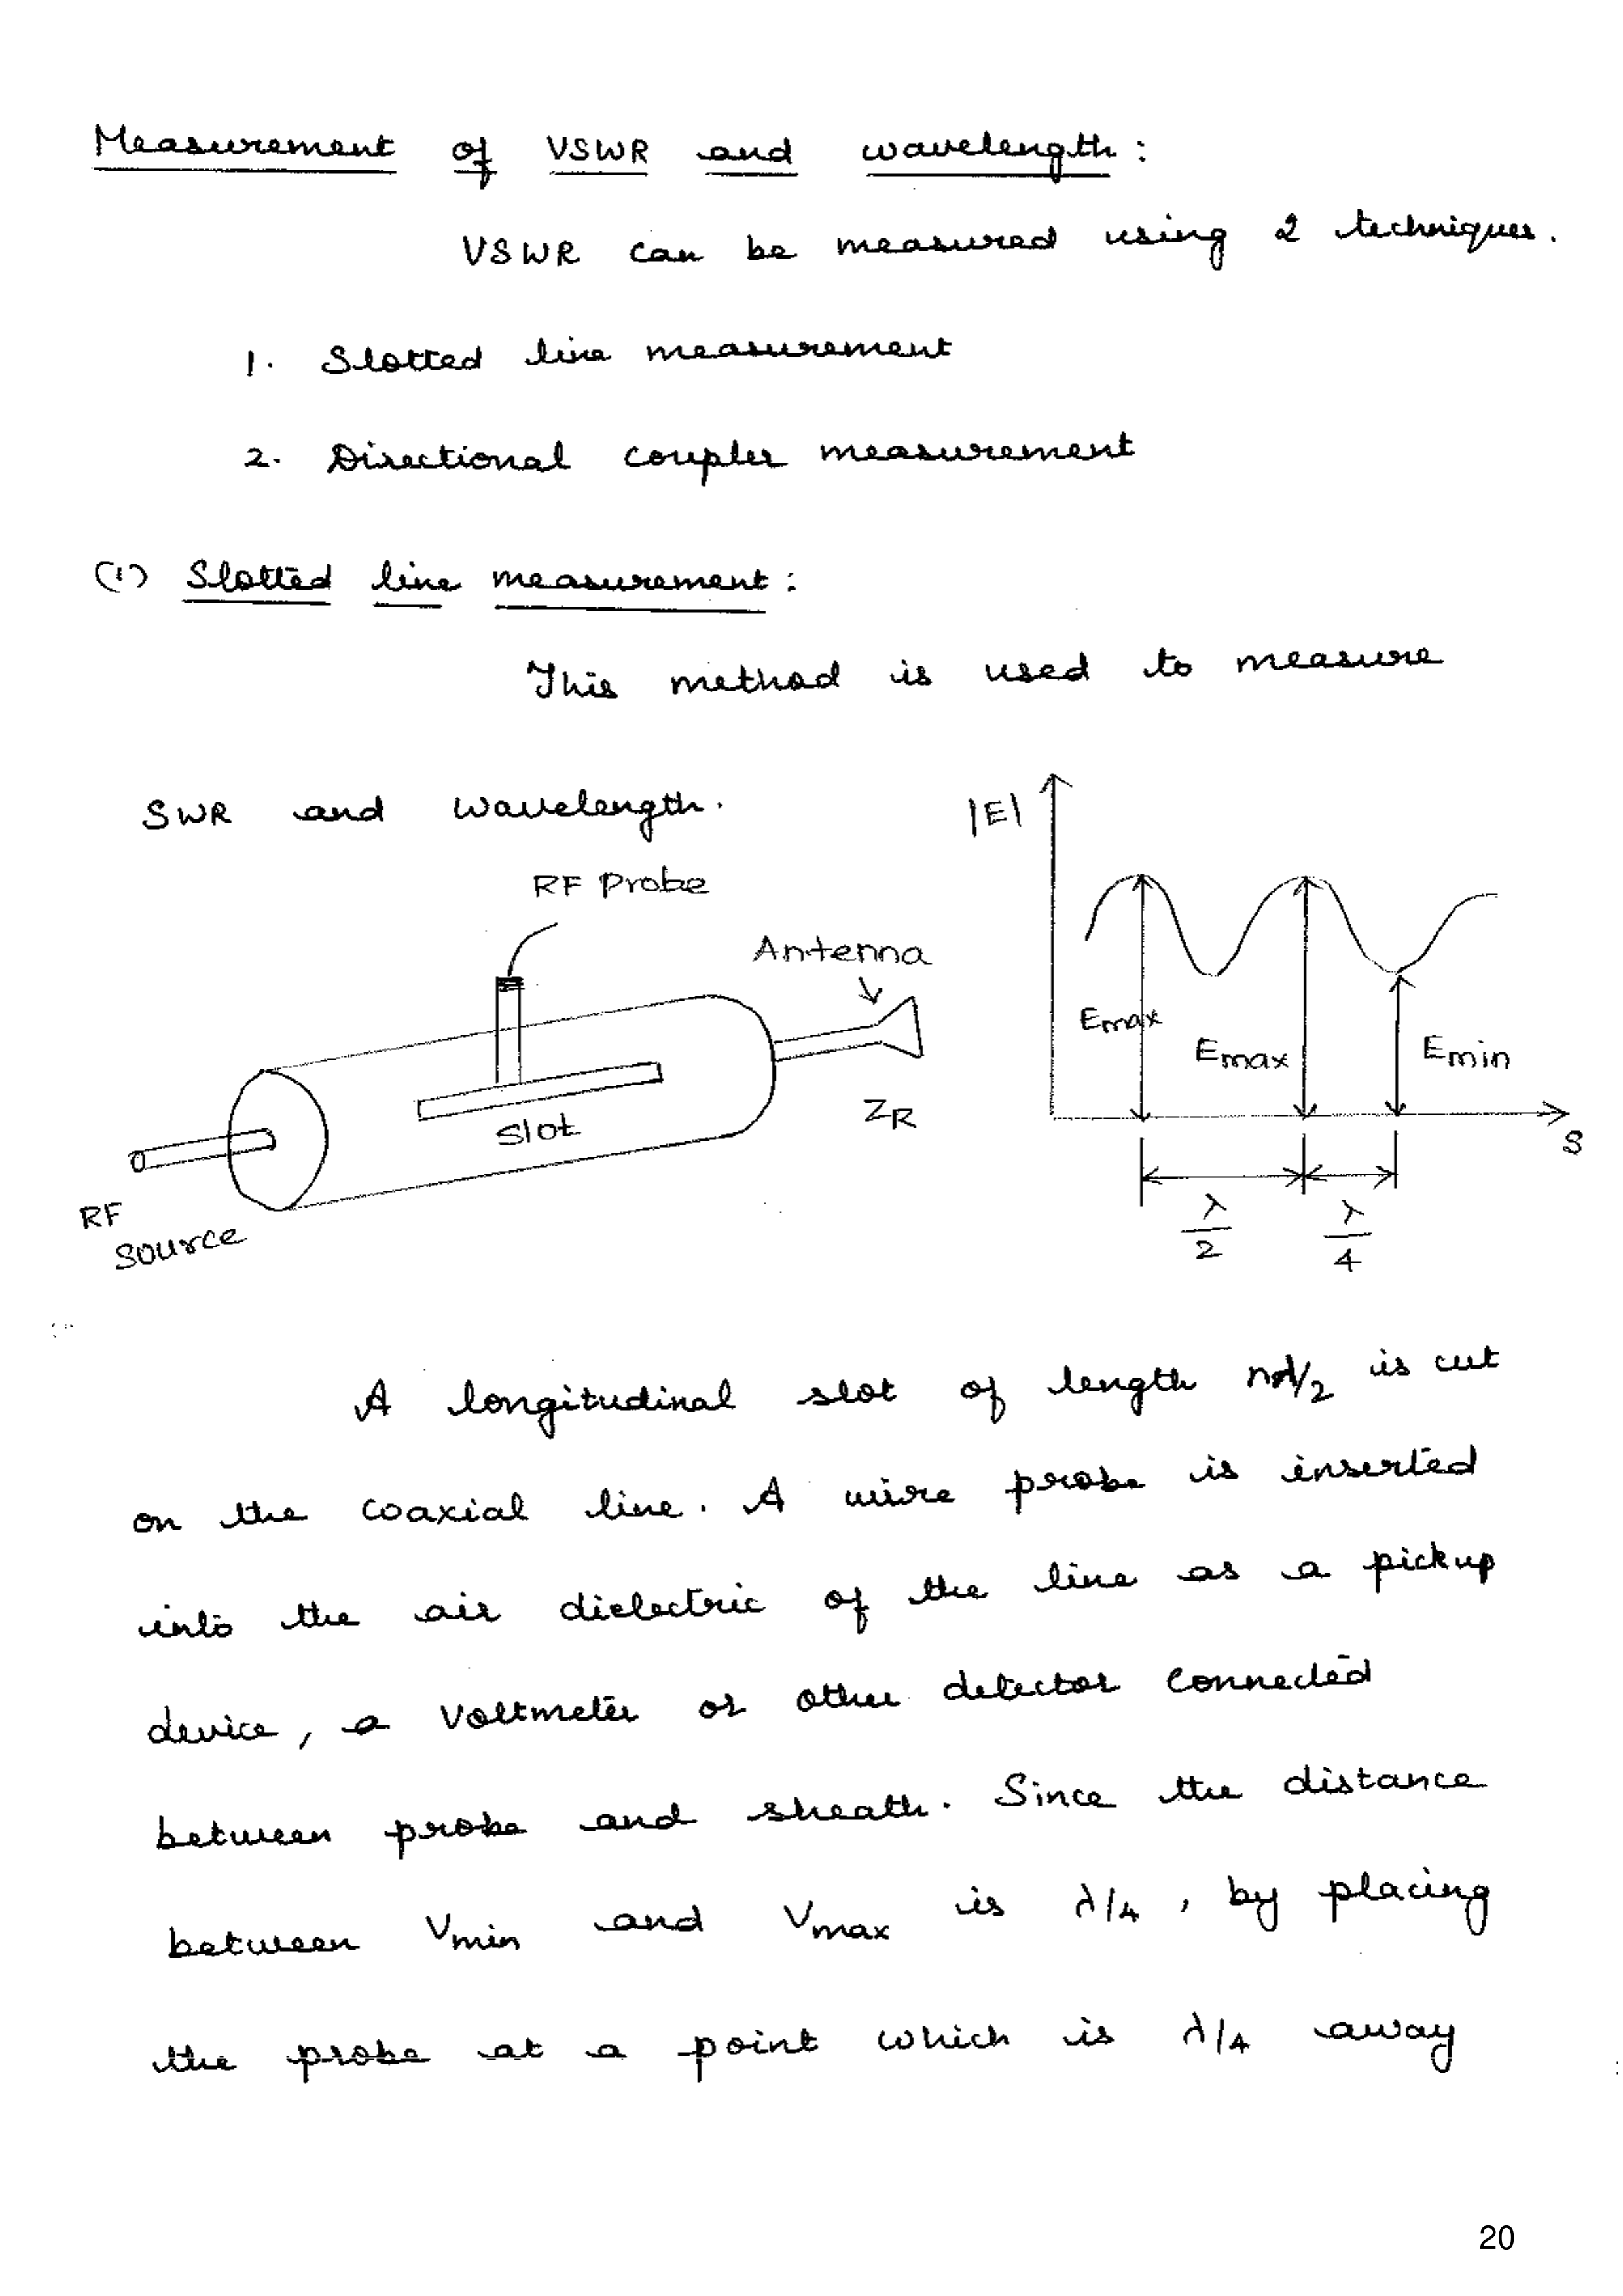 Measurement of VSWR and wavelength :
VSWR can be measured using 2 techniques.
1. Slotted line measurement
2. Directional coupler measurement
(1) Slotted line measurement :
This method is used to measure
SWR and wavelength.
RF Probe
Antenna
Slot
ZR
RF
Source
|E|
Emax
Emax
Emin
S
λ/2
λ/4
A longitudinal slot of length nλ/2 is cut
on the coaxial line. A wire probe is inserted
into the air dielectric of the line as a pickup
device, a voltmeter or other detector connected
between probe and sheath. Since the distance
between Vmin and Vmax is λ/4, by placing
the probe at a point which is λ/4 away
20